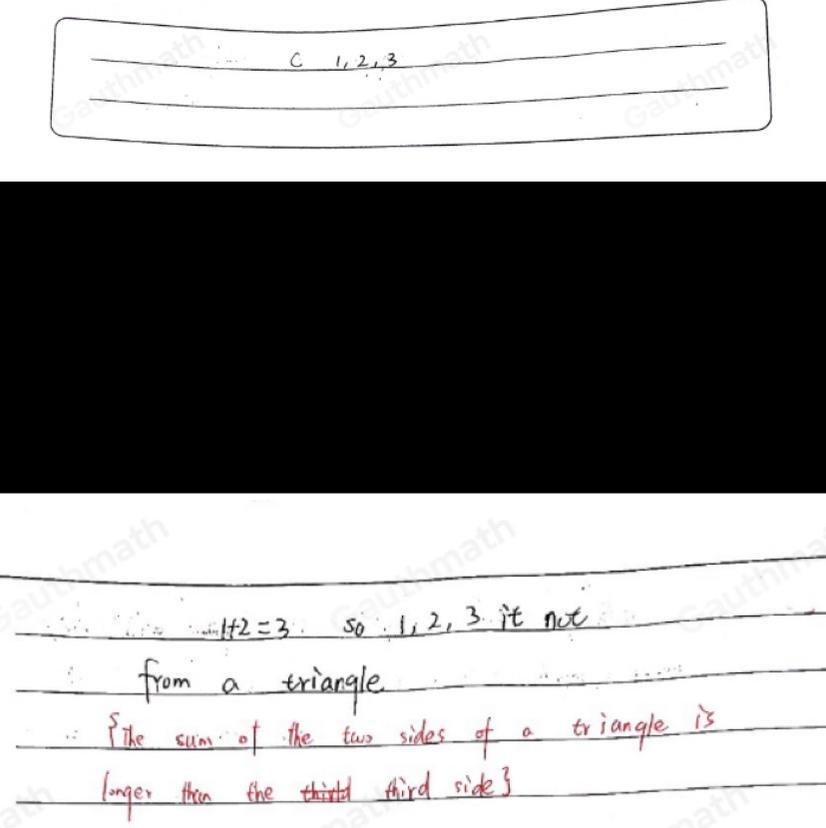 C 1, 2, 3
1+2=3. so 1, 2, 3 it not
from a triangle
{The sum of the two sides of a triangle is
longer than the third third side}